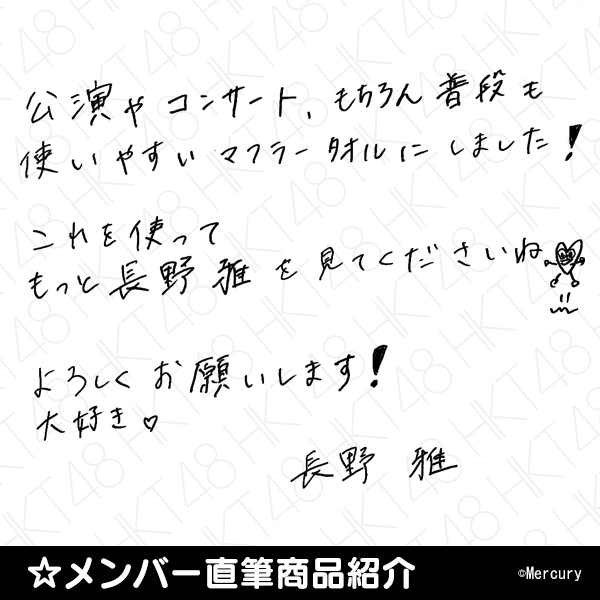 公演やコンサート、もちろん普段も
使いやすいマフラータオルにしました!
これを使って
もっと長野雅を見てくださいね
よろしくお願いします!
大好き♡
長野 雅
☆メンバー直筆商品紹介
©Mercury
HKT48